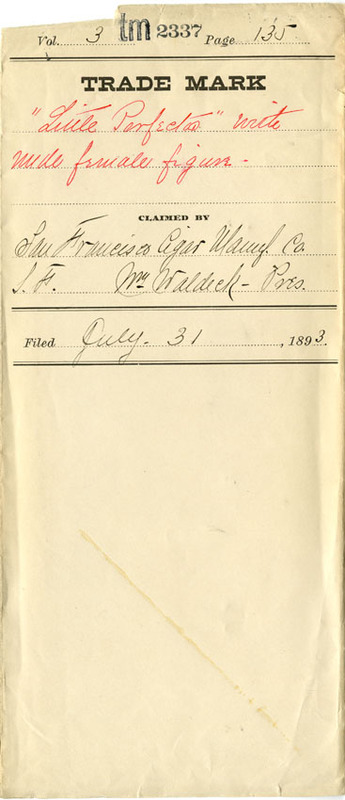 Vol. 3 tm 2337 Page 135
TRADE MARK
"Little Perfectos" with
nude female figure -
CLAIMED BY
San Francisco Cigar Manuf. Co.
S. F. Wm Waldeck - Pres.
Filed July. 31, 1893.